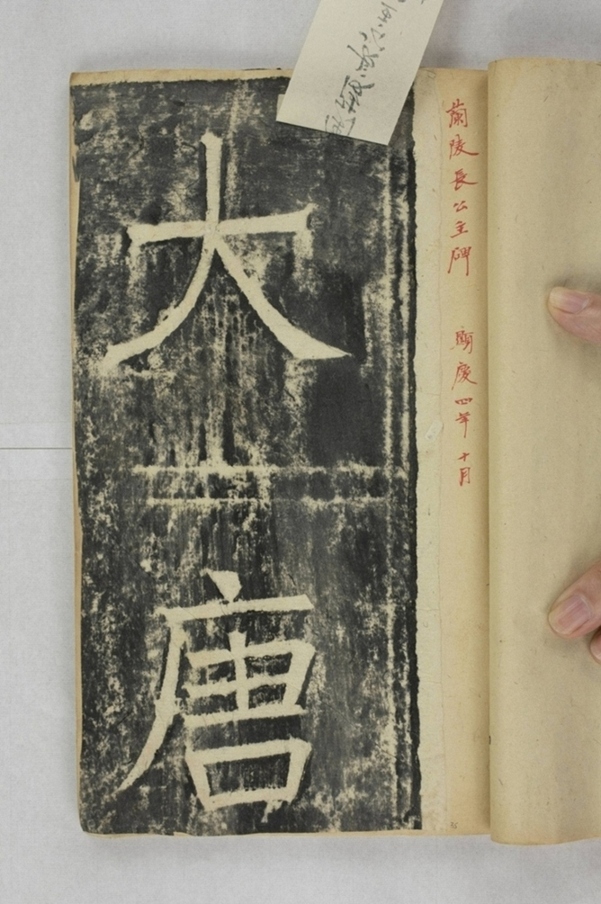 蘭陵長公主碑 顯慶四年十月
大唐